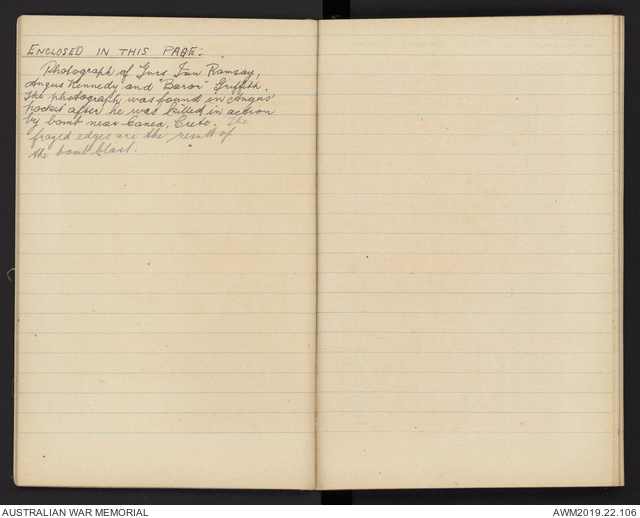 ENCLOSED IN THIS PAGE:
Photograph of Gnrs Ian Ramsay,
Angus Kennedy and "Baron" Griffith.
The photograph was found in Angus'
pocket after he was killed in action
by bomb near Canea, Crete. The
frayed edges are the result of
the bomb blast.
AUSTRALIAN WAR MEMORIAL
AWM2019.22.106